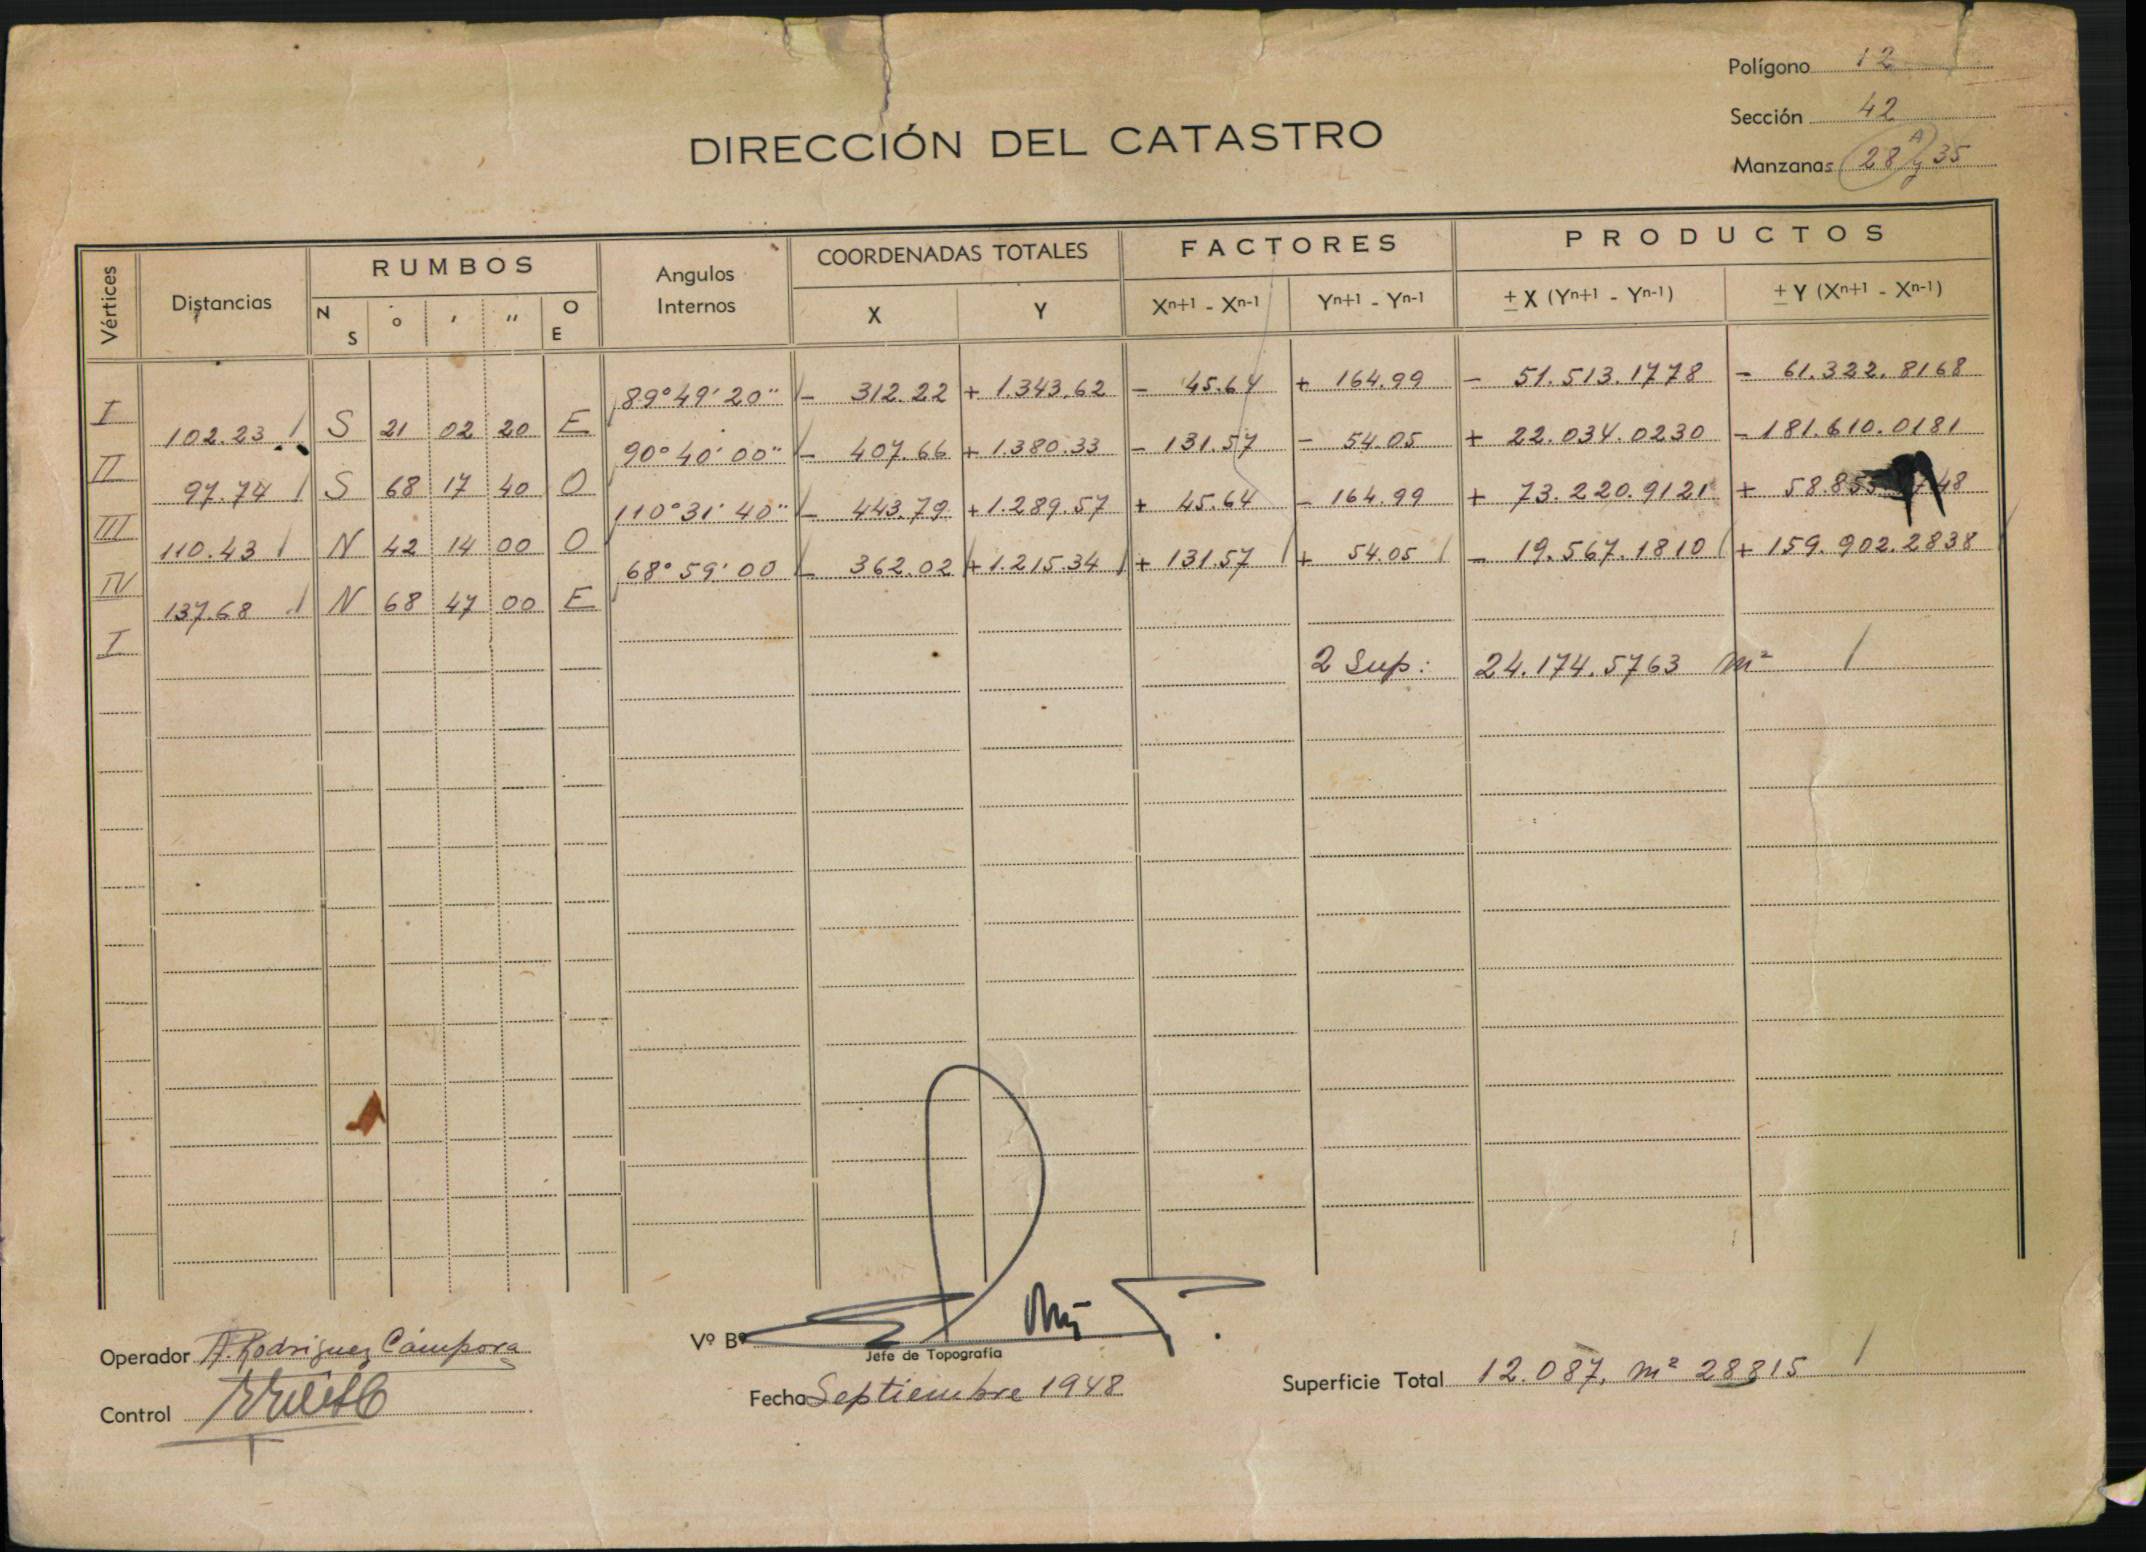 Polígono 12
Sección 42
Manzanas 28 A y 35
DIRECCIÓN DEL CATASTRO
Vértices Distancias RUMBOS Angulos Internos COORDENADAS TOTALES FACTORES PRODUCTOS
N S ° ' " O E X Y Xn+1 - Xn-1 Yn+1 - Yn-1 ± X (Yn+1 - Yn-1) ± Y (Xn+1 - Xn-1)
I 89°49'20" - 312.22 + 1.343.62 - 45.64 + 164.99 - 51.513.1778 - 61.322.8168
102.23 S 21 02 20 E
II 90°40'00" - 407.66 + 1.380.33 - 131.57 - 54.05 + 22.034.0230 - 181.610.0181
97.74 S 68 17 40 O
III 110°31'40" - 443.79 + 1.289.57 + 45.64 - 164.99 + 73.220.9121 + 58.855
110.43 N 42 14 00 O
IV 68°59'00 - 362.02 + 1.215.34 + 131.57 + 54.05 - 19.567.1810 + 159.902.2838
137.68 N 68 47 00 E
I
2 Sup: 24.174.5763 m²
Operador A. Rodriguez Cámpora
Control
Vº Bº
Jefe de Topografía
Fecha Septiembre 1948
Superficie Total 12.087, m² 28815